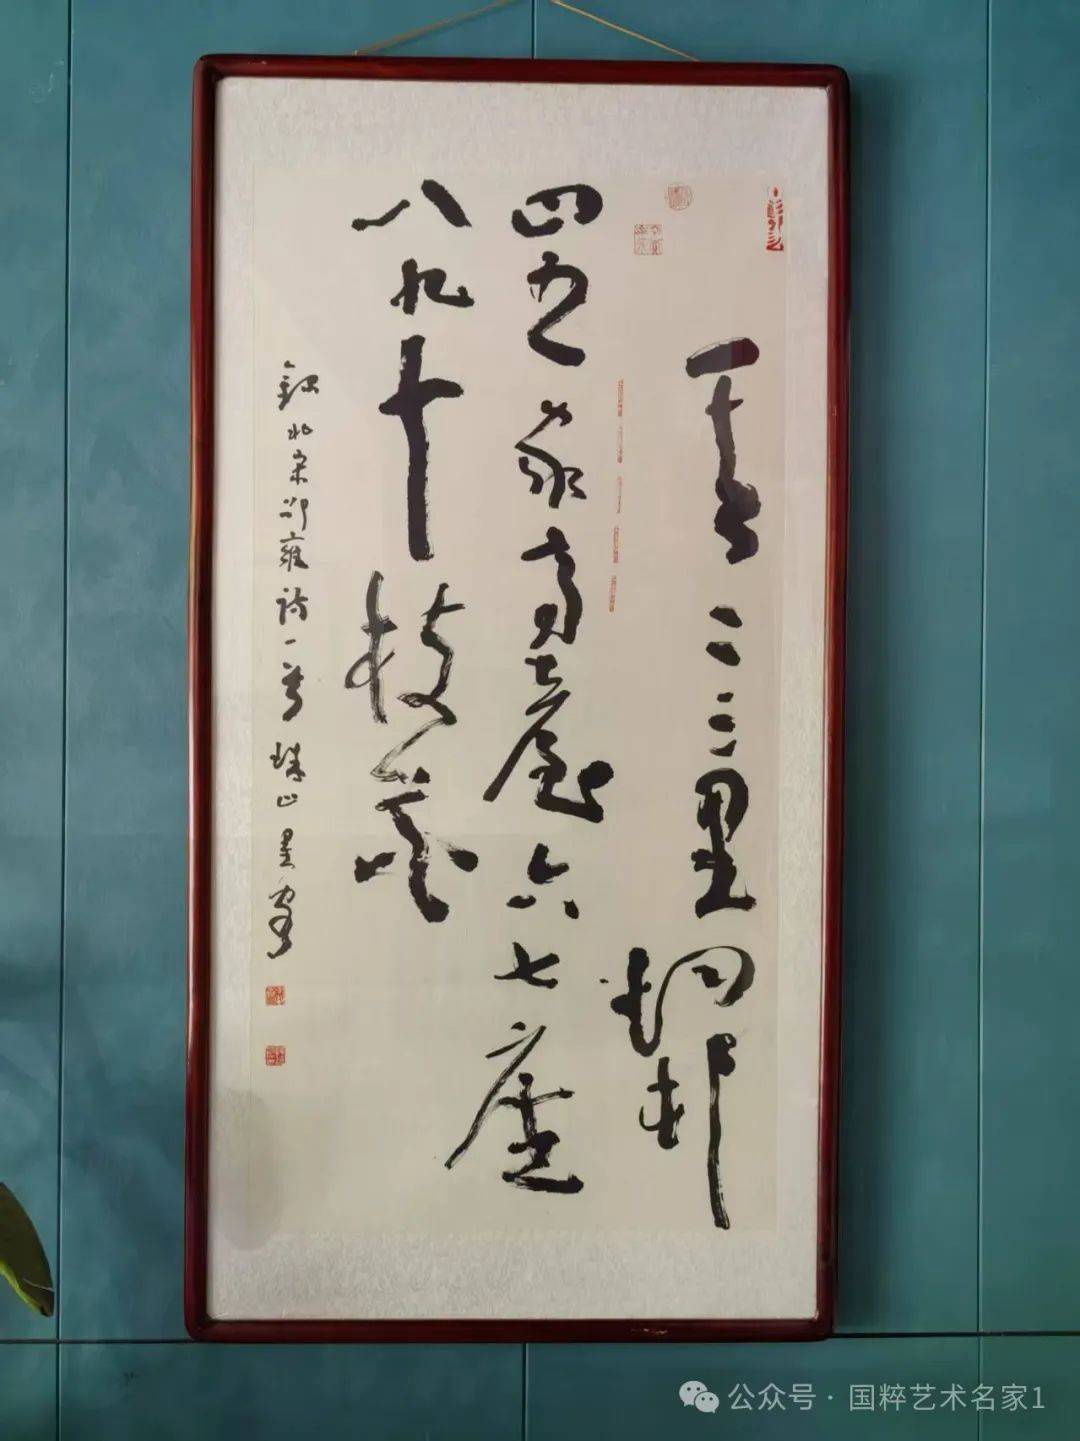 一去二三里烟村
四五家亭臺六七座
八九十枝花
録北宋邵雍詩一首
公众号 · 国粹艺术名家1